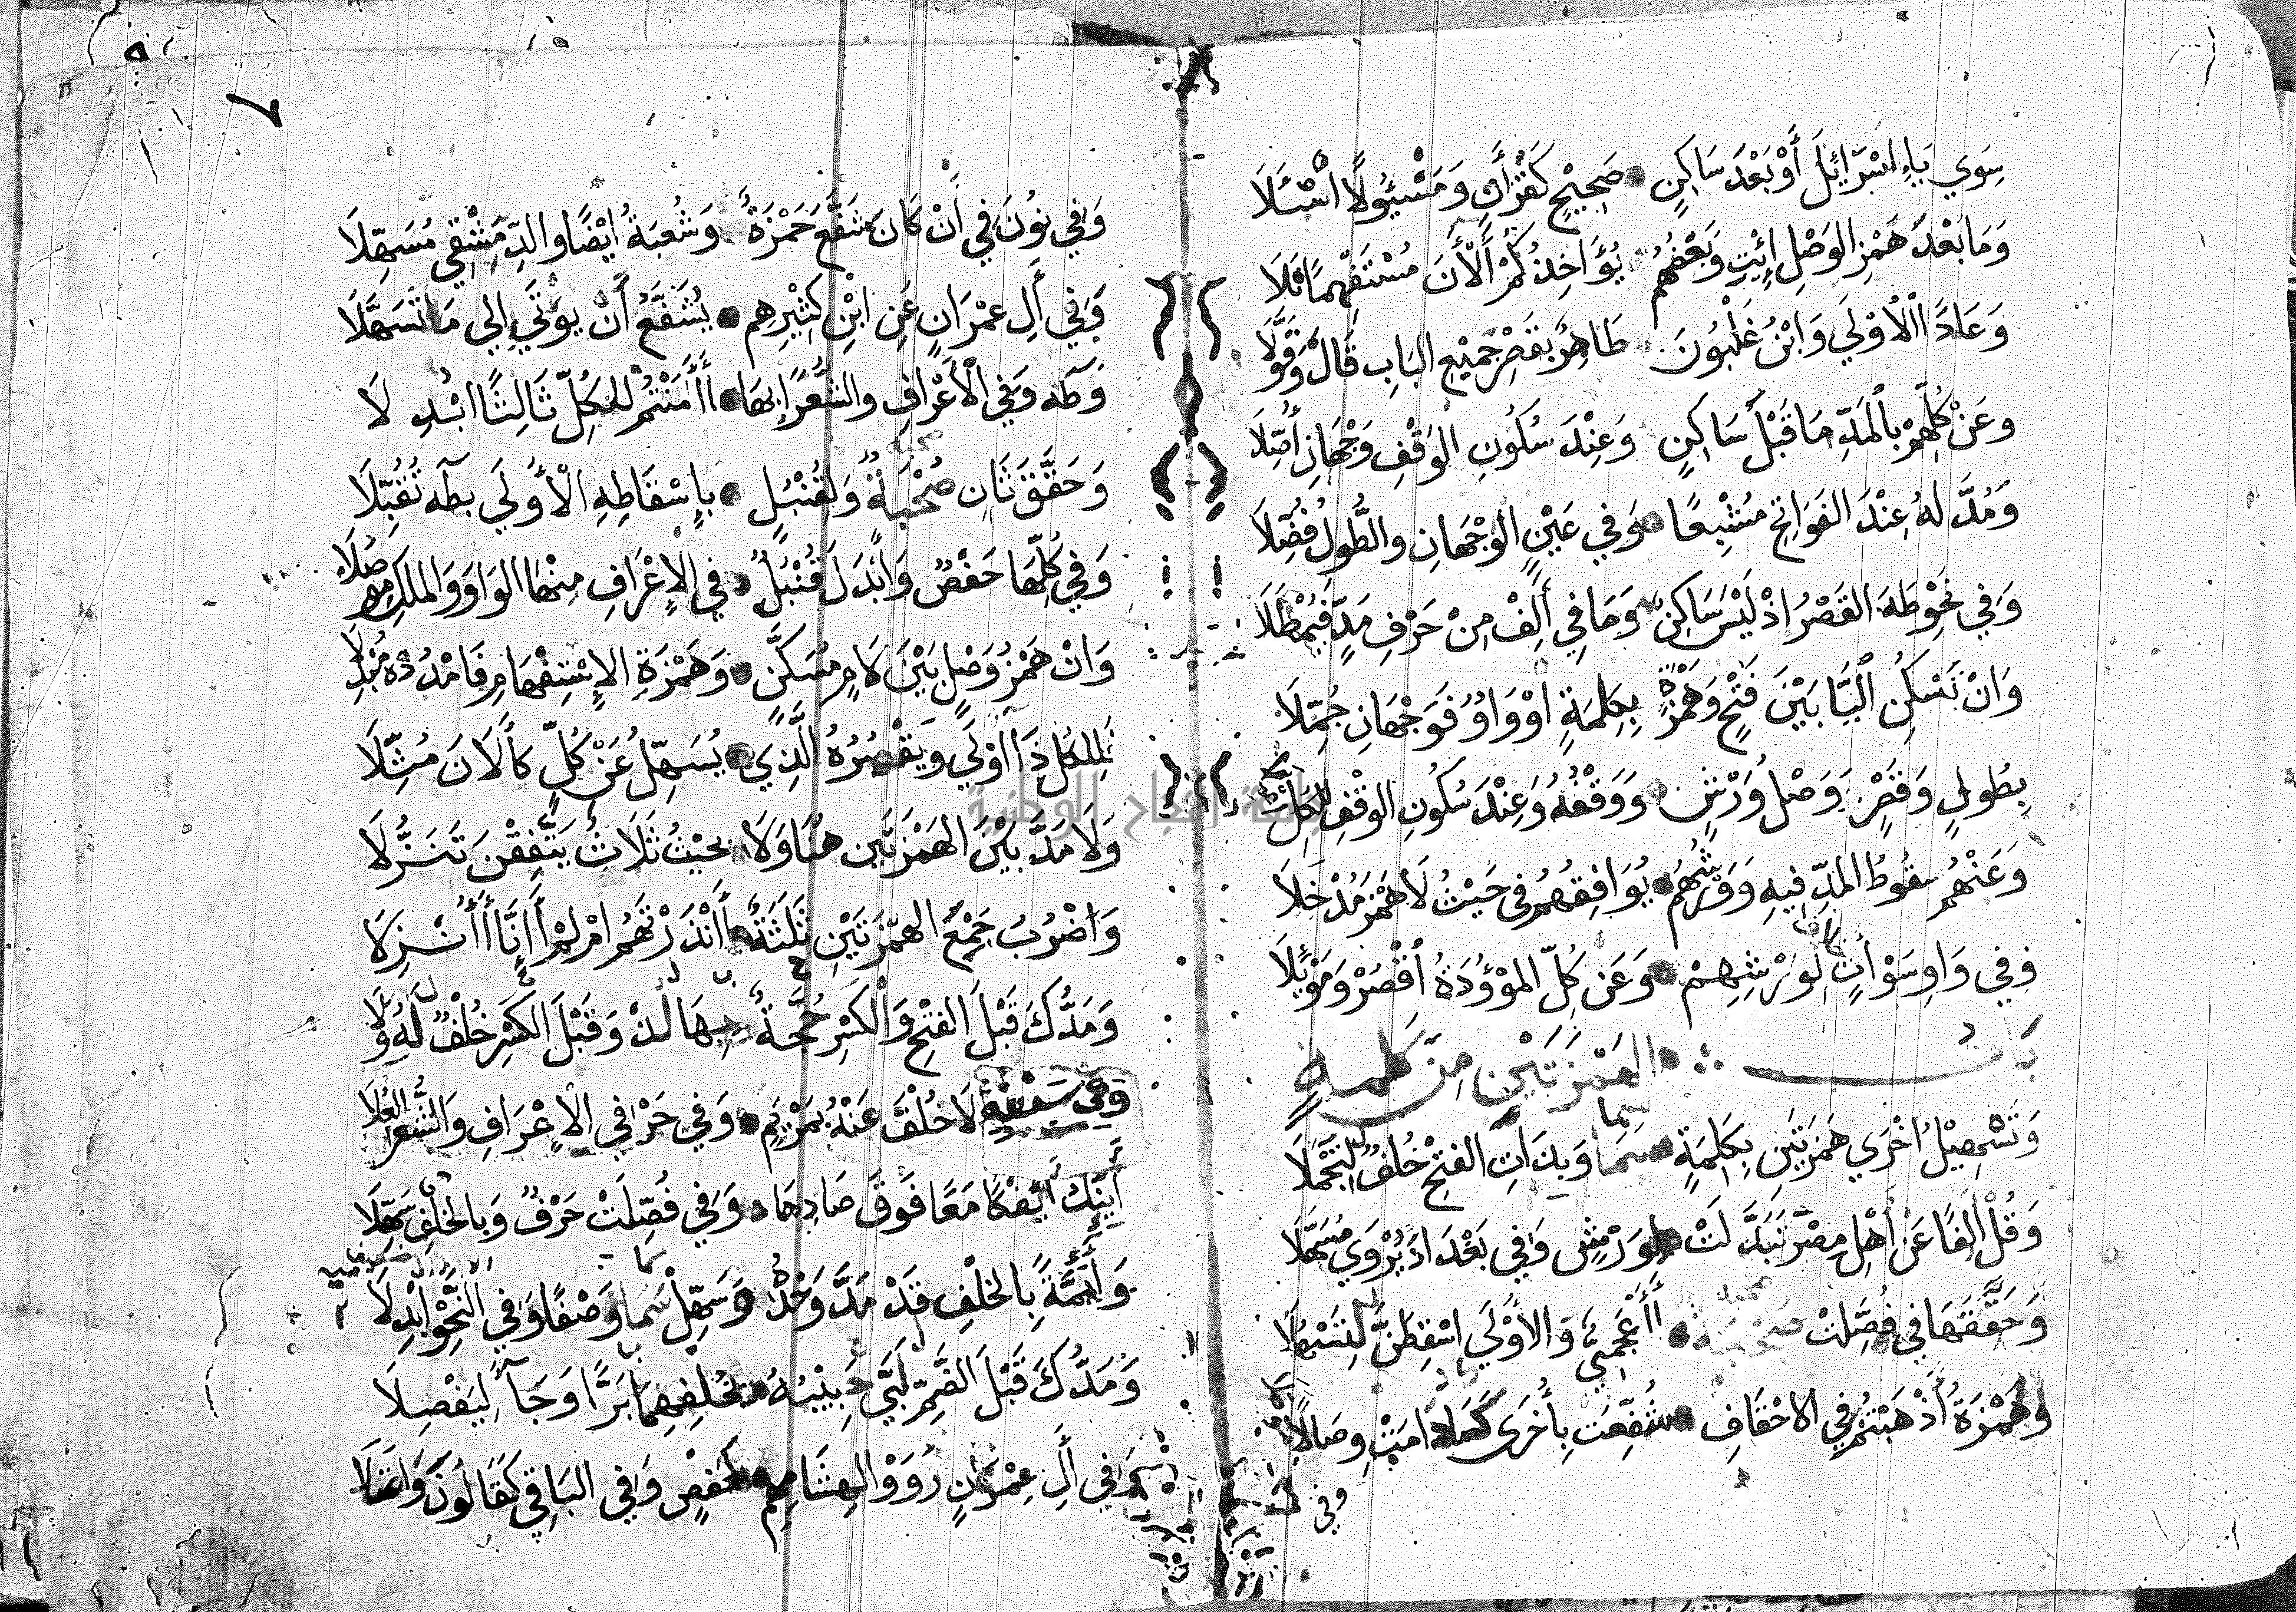 سِوَي يَاءِ اسْرَائِلَ أَوْ بَعْدَ سَاكِنٍ ● صَحِيْحٍ كَقُرْأَنٍ وَمَسْئُولًا اسْئَلَا
وَمَا بَعْدَ هَمْزِ الوَصْلِ ائِتِ وَبَعْضُهُمْ يُؤَاخِذُكُمُ أَلْأَنَ مُسْتَفْهِمًا تَلَا
وَعَادًا اَلْأُوْلَي وَابْنُ غَلْبُونَ طَاهِرٌ بِقَصْرِ جَمِيْعِ البَابِ قَالَ وَقَوَّلَا
وعَنْ كُلِّهِمْ بِالْمَدِّ مَا قَبْلَ سَاكِنٍ وَعِنْدَ سُكُونِ الوَقْفِ وَجْهَانِ أُصِّلَا
وَمُدَّ لهُ عِنْدَ الفَوَاتِحِ مُشْبِعًا ● وَفي عَيْنٍ الوَجْهَانِ والطُّولُ فُضِّلَا
وَفي نَحْوِ طَهَ القَصْرُ اذْ لَيْسَ سَاكِنٌ وَمَا فِي أَلِفْ مِنْ حَرْفِ مَدٍّ فَيُمْطَلَا
وَانْ تَسْكُنِ اليَا بَيْنَ فَتْحٍ وَهَمْزَةٍ بِكِلمَةٍ اوْ وَاوٌ فَوَجْهَانِ جُمِّلَا
بِطُولٍ وَقَصْرٍ وَصْلُ وَرْشٍ ● وَوَقْفُهُ وَعِنْدَ سُكُونِ الوَقْفِ لِلكُلِّ
وَعَنْهُمْ سقُوطُ المدِّ فِيهِ وَوَرْشُهُمْ ● يُوَافِقُهُمْ في حَيْثُ لَا هَمْزَ مُدْخَلَا
وفي وَاوِ سَوْأتٍ لِوَرْشِهِمْ ● وَعَن كُلِّ المَوْؤُدَةُ اقْصُرْ وَمَوْئِلَا
بَابُ الهَمْزَتَيْنِ مِنْ كَلِمَةٍ
وَتَسْهِيْلُ اخْرَي هَمْزَتَيْنِ بِكِلِمَةٍ ● سَمَا وَبِذَاتِ الفَتْحِ خُلْفٌ لِتَجْمُلَا
وَقُلْ الِفًا عَنْ أَهْلِ مِصْرَ تَبَدَّلَتْ ● لِوَرْشٍ وَفي بَغْدَادَ يُرْوَي مُسَهَّلَا
وَحَقَّقَهَا في فُصِّلَتْ صُحْبَةٌ ● أَأَعْجَمِيٌّ وَالاُوْلَي اسْقِطَنَّ لِتَسْهُلَا
وَهَمْزَةُ أَذْهَبْتُمْ في الاحْقَافِ ● شُفِّعَتْ بِأُخْرَى كَمَا دَامَتْ وِصَالًا
وفي
٧
وَفِي نُونَ فِي أَنْ كَانَ شَفَّعَ حَمْزَةٌ وَشُعْبَةُ ايْضًا والدِّمَشْقِي مُسَهِّلَا
وَفِي أَلِ عِمْرَانٍ عَنِ ابْنِ كَثِيْرِهِم ● يُشَفَّعُ أَنْ يُوتَي إِلي مَا تَسَهَّلَا
وَطَه وَفي الْأَعْرَافِ والشُّعَرَا بِهَا ● أَأَمَنْتُمْ للكُلِّ ثَالِثًا ابْدِلَا
وَحَقَّقَ ثَانٍ صُحْبَةٌ وَلِقُنْبُلٍ ● بِإِسْقَاطِهِ الْأُوْلَي بطَه تُقُبِّلَا
وَفِي كُلِّهَا حَفْصٌ وَابْدَلَ قُنْبُلٌ ● في الاعْرَافِ مِنْهَا الوَاوَ وَالملكِ مُوصِلَا
وَانْ هَمْزُ وَصْلٍ بَيْنَ لَامٍ مُسَكَّنٍ ● وَهَمْزَةِ الاِسْتِفْهَامِ فَامْدُدْهُ مُبْدِلَا
فَلِلكُلِّ ذَا اَوْلَي وَيَقْصُرُهُ الَّذِي ● يُسَهِّلُ عَنْ كُلٍّ كأَلَانَ مُثِّلَا
وَلَا مَدَّ بَيْنَ الهَمْزَتَيْنِ هُنَا وَلَا بحَيْثُ ثَلَاثٌ يَتَّفِقْنَ تَنَزُّلَا
وَاضْرُبُ جَمْعِ الهَمْزَتَيْنِ ثَلَثَةٌ ● أَأَنْذَرْتَهُم امْ لَمْ أَإِنَّا أَأُنْزِلَا
وَمَدُّكَ قَبْلَ الفَتْحِ وَالْكَسْرِ حُجَّةٌ ● بِهَا لُذْ وَقَبْلَ الكَسْرِ خُلْفٌ لَهُ وَلَا
وَفِي سَبْعَةٍ لَا خُلْفَ عَنْهُ بِمَرْيَمٍ ● وَفي حَرْفَي الاعْرَافِ وَالشُّعَرَا العُلَا
أَئِنَّكَ ائِفْكًا مَعًا فَوْقَ صَادِهَا ● وَفي فُصِّلَتْ حَرْفٌ وَبِالخُلْفِ سَهِّلَا
وَأَئِمَّةً بِالخُلْفِ قَدْ مَدَّ وَحْدَهُ وَسَهِّلْ سَمَا وَصْفًا وَفي النَّحْوِ ابْدِلَا
وَمَدُّكَ قَبْلَ الضَّمِّ لَبَّي حَبِيْبُهُ ● بخُلْفِهِمَا بَرًّا وَجَاء لِيَفْصِلَا
وَفِي أَلِ عِمْرَانٍ رَوَوْا لِهِشَامِهِمْ ● كَحَفْصٍ وَفي البَاقِي كَقَالُونَ وَاعْتَلَا